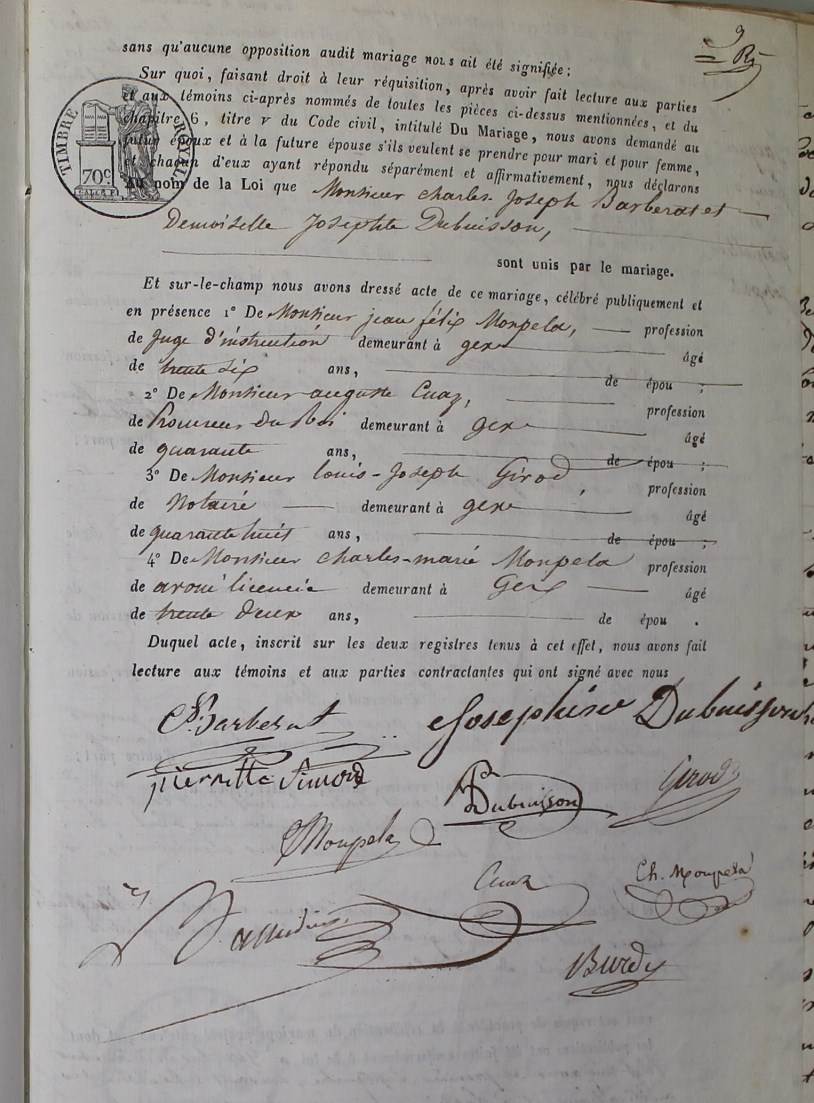 9
sans qu'aucune opposition audit mariage nous ait été signifiée ;
Sur quoi, faisant droit à leur réquisition, après avoir fait lecture aux parties
et aux témoins ci-après nommés de toutes les pièces ci-dessus mentionnées, et du
chapitre 6, titre v du Code civil, intitulé Du Mariage, nous avons demandé au
futur époux et à la future épouse s'ils veulent se prendre pour mari et pour femme,
et chacun d'eux ayant répondu séparément et affirmativement, nous déclarons
Au nom de la Loi que Monsieur charles Joseph Barberat et
Demoiselle Josephte Dubuisson,
sont unis par le mariage.
TIMBRE ROYAL
70c
Et sur-le-champ nous avons dressé acte de ce mariage, célébré publiquement et
en présence 1° De Monsieur jean félix Monpela, profession
de juge d'instruction demeurant à gex âgé
de trente six ans, de épou ;
2° De Monsieur auguste Cuaz, profession
de Procureur du Roi demeurant à gex âgé
de quarante ans, de épou ;
3° De Monsieur louis-Joseph Girod, profession
de Notaire demeurant à gex âgé
de quarante huit ans, de épou ;
4° De Monsieur charles-marie Monpela profession
de avoué licencié demeurant à Gex âgé
de trente deux ans, de épou .
Duquel acte, inscrit sur les deux registres tenus à cet effet, nous avons fait
lecture aux témoins et aux parties contractantes qui ont signé avec nous
Barberat Josephine Dubuisson
pierrette Simond Dubuisson Girod
Monpela
Cuaz Ch. Monpela
Burdy